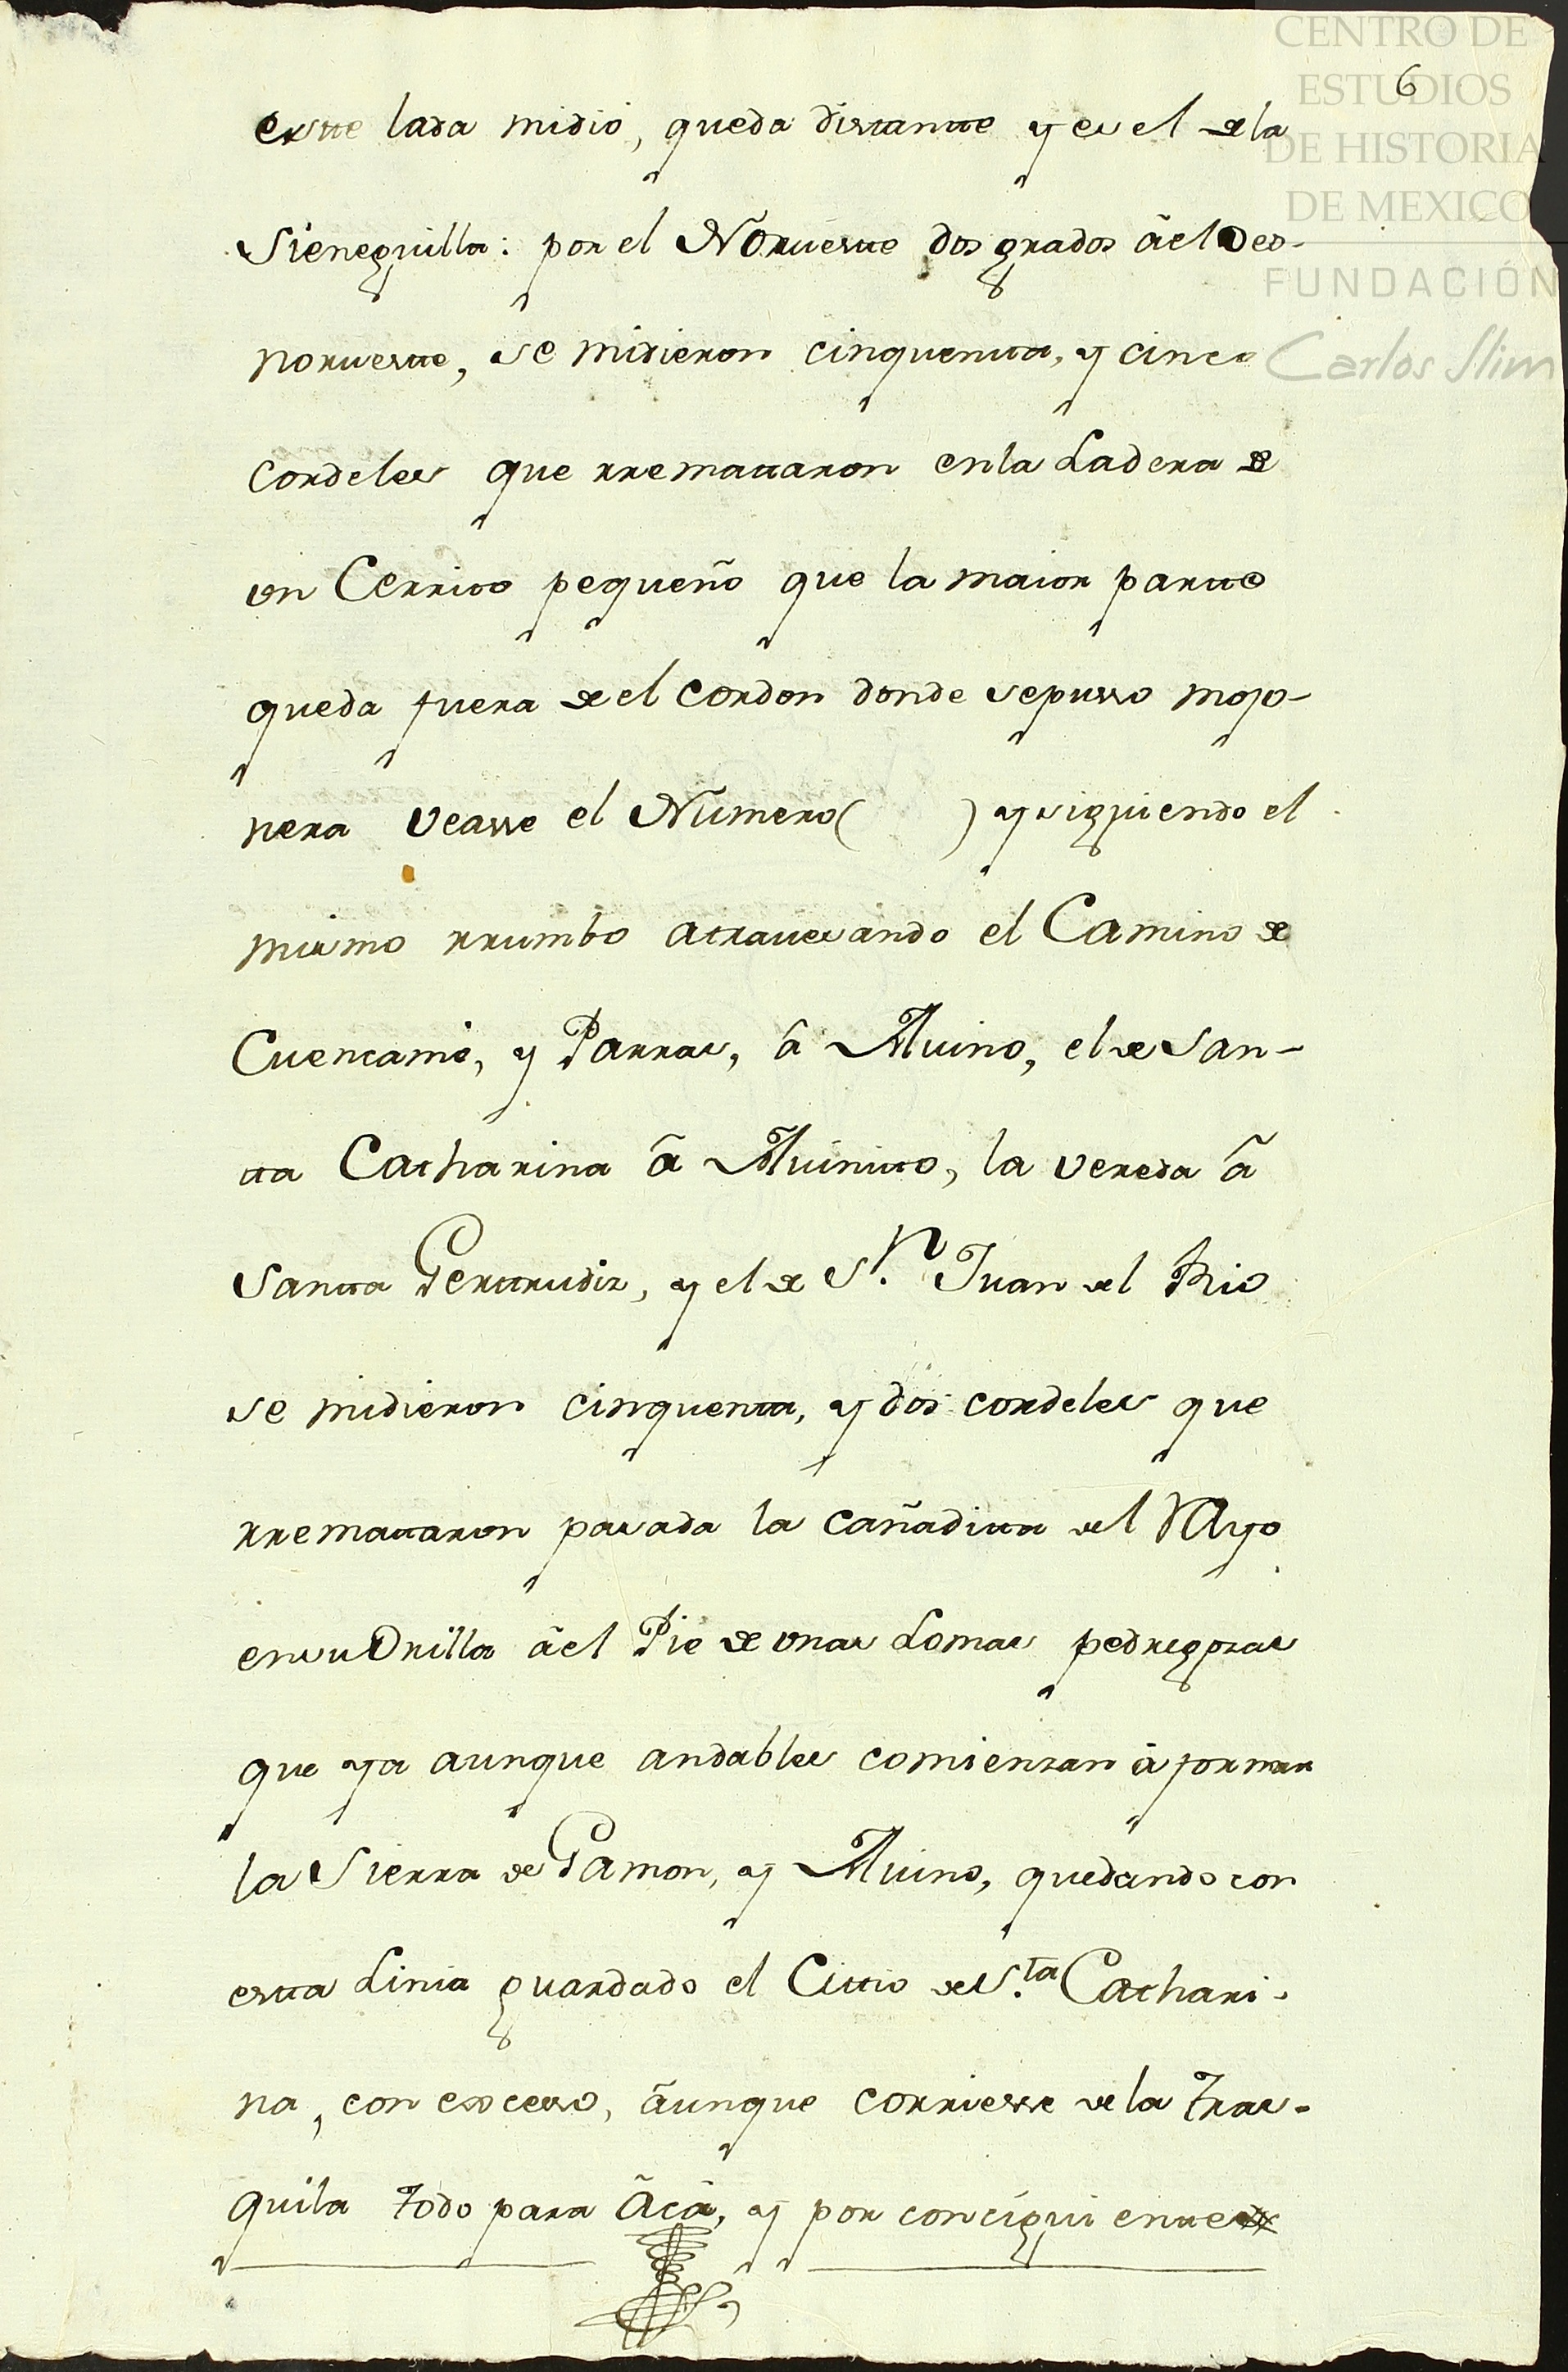 CENTRO DE
ESTUDIOS
DE HISTORIA
DE MEXICO
FUNDACIÓN
Carlos Slim
6
este lada midió, queda distantte y es el de la
Sieneguilla: por el Norueste dos grados ael Oes-
norueste, se midieron cinquentta, y cinco
Cordeles que rremattaron en la Ladera de
vn Cerrito pequeño que la maior partte
queda fuera de el cordon donde se pusso mojo-
nera veasse el Numero (     ) y siguiendo el
mismo rrumbo atrauesando el Camino de
Cuencamé, y Parras, â Auino, el de San-
tta Catharina â Auinitto, la vereda â
Santta Gerttrudiz, y el de S.n Juan del Rio
se midieron cinquentta, y dos cordeles que
rremattaron pasada la cañaditta del
en su Orilla âel Pie de vnas Lomas pedregosas
que ya aunque andables comienzan â formar
la Sierra de Gamon, y Auino, quedando con
estta Linia guardado el Cittio de S.ta Cathari-
na, con exceso, âunque corriesse de la Tras-
quila todo para âcâ, y por conciguiente